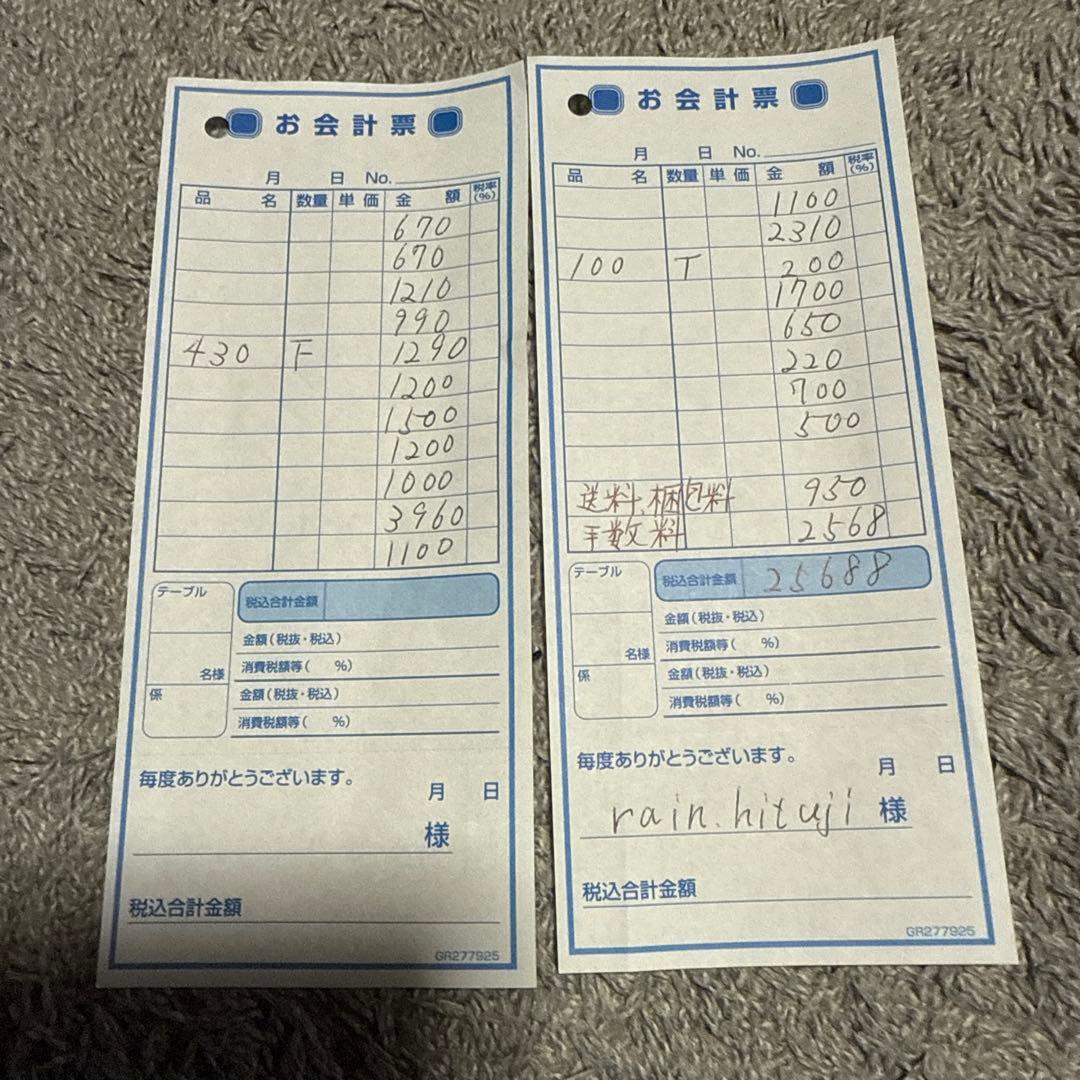 お会計票
月 日 No.
品名 数量 単価 金額 税率(%)
670
670
1210
990
430 F 1290
1200
1500
1200
1000
3960
1100
テーブル
税込合計金額
金額(税抜・税込)
名様
消費税額等( %)
係
金額(税抜・税込)
消費税額等( %)
毎度ありがとうございます。
月 日
様
税込合計金額
GR277925
お会計票
月 日 No.
品名 数量 単価 金額 税率(%)
1100
2310
100 T 200
1700
650
220
700
500
送料、梱包料 950
手数料 2568
テーブル
税込合計金額 25688
金額(税抜・税込)
名様
消費税額等( %)
係
金額(税抜・税込)
消費税額等( %)
毎度ありがとうございます。
月 日
rain.hituji 様
税込合計金額
GR277925